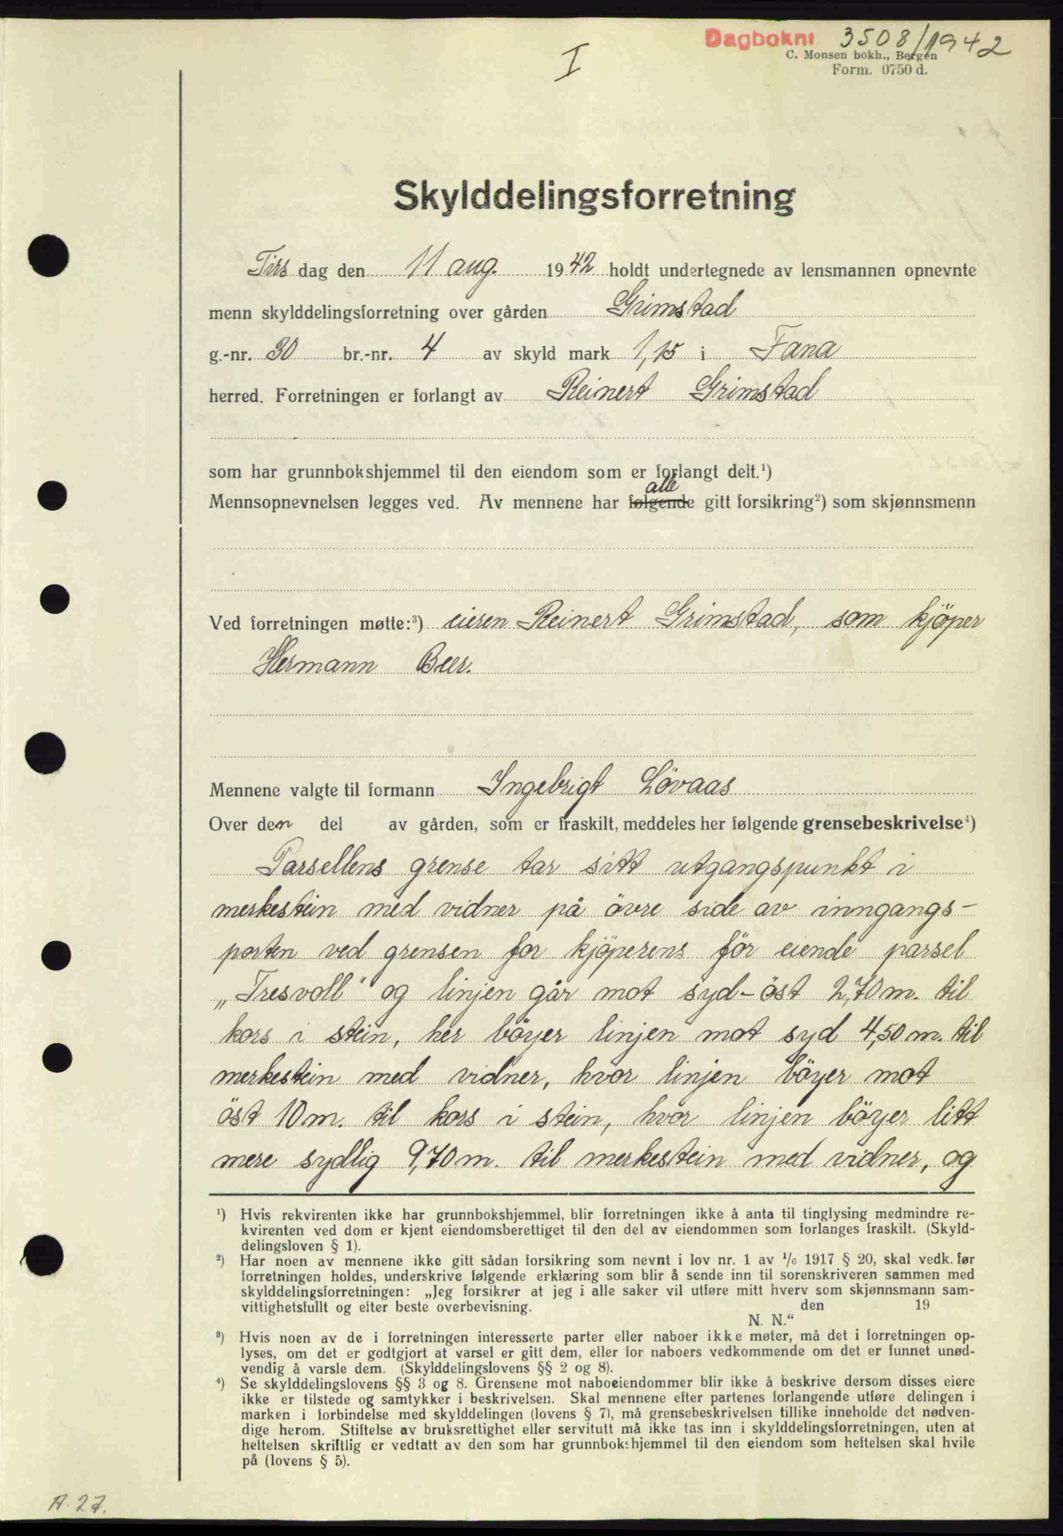 Dagboknr 3508/1942
I
C. Monsen bokh., Bergen
Form. 0750 d.
Skylddelingsforretning
Tirs dag den 11 aug. 1942 holdt undertegnede av lensmannen opnevnte
menn skylddelingsforretning over gården Grimstad
g.-nr. 30 br.-nr. 4 av skyld mark 1,15 i Fana
herred. Forretningen er forlangt av Reinert Grimstad
som har grunnbokshjemmel til den eiendom som er forlangt delt.¹)
alle
Mennsopnevnelsen legges ved. Av mennene har følgende gitt forsikring²) som skjønnsmenn
Ved forretningen møtte:³) eieren Reinert Grimstad, som kjöper
Hermann Beer.
Mennene valgte til formann Ingebrigt Lövaas
Over den del av gården, som er fraskilt, meddeles her følgende grensebeskrivelse⁴)
Parsellens grense tar sitt utgangspunkt i
merkestein med vidner på övre side av inngangs-
porten ved grensen for kjöperens för eiende parsel
„Tresvoll" og linjen går mot syd-öst 2,70 m. til
kors i stein, her böyer linjen mot syd 4,50 m. til
merkestein med vidner, hvor linjen böyer mot
öst 10 m. til kors i stein, hvor linjen böyer litt
mere sydlig 9,70 m. til merkestein med vidner, og
¹) Hvis rekvirenten ikke har grunnbokshjemmel, blir forretningen ikke å anta til tinglysing medmindre re-
kvirenten ved dom er kjent eiendomsberettiget til den del av eiendommen som forlanges fraskilt. (Skyld-
delingsloven § 1).
²) Har noen av mennene ikke gitt sådan forsikring som nevnt i lov nr. 1 av ¹/₆ 1917 § 20, skal vedk. før
forretningen holdes, underskrive følgende erklæring som blir å sende inn til sorenskriveren sammen med
skylddelingsforretningen: „Jeg forsikrer at jeg i alle saker vil utføre mitt hverv som skjønnsmann sam-
vittighetsfullt og etter beste overbevisning. den 19
N. N."
³) Hvis noen av de i forretningen interesserte parter eller naboer ikke møter, må det i forretningen op-
lyses, om det er godtgjort at varsel er gitt dem, eller for naboers vedkommende om det er funnet unød-
vendig å varsle dem. (Skylddelingslovens §§ 2 og 8).
⁴) Se skylddelingslovens §§ 3 og 8. Grensene mot naboeiendommer blir ikke å beskrive dersom disses eiere
ikke er tilstede og samtykker i beskrivelsen. Skal mennene efter partenes forlangende utføre delingen i
marken i forbindelse med skylddelingen (lovens § 7), må grensebeskrivelsen tillike inneholde det nødven-
dige herom. Stiftelse av bruksrettighet eller servitutt må ikke tas inn i skylddelingsforretningen, uten at
heftelsen skriftlig er vedtatt av den som har grunnbokshjemmel til den eiendom som heftelsen skal hvile
på (lovens § 5).
A. 27.